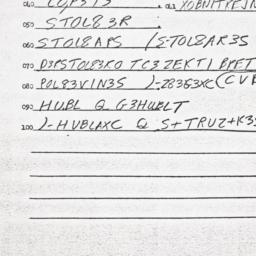 050 STOL83R :
060 STOL8APS (STOL8AR3S
070 D3PSTOL83KO TC3ZEKTI
080 POL83VIN3S )-Z83G3XC (CV
090 HUBL Q G3HUBLT
100 )-HVBLAXC Q S+TRUZ+K3